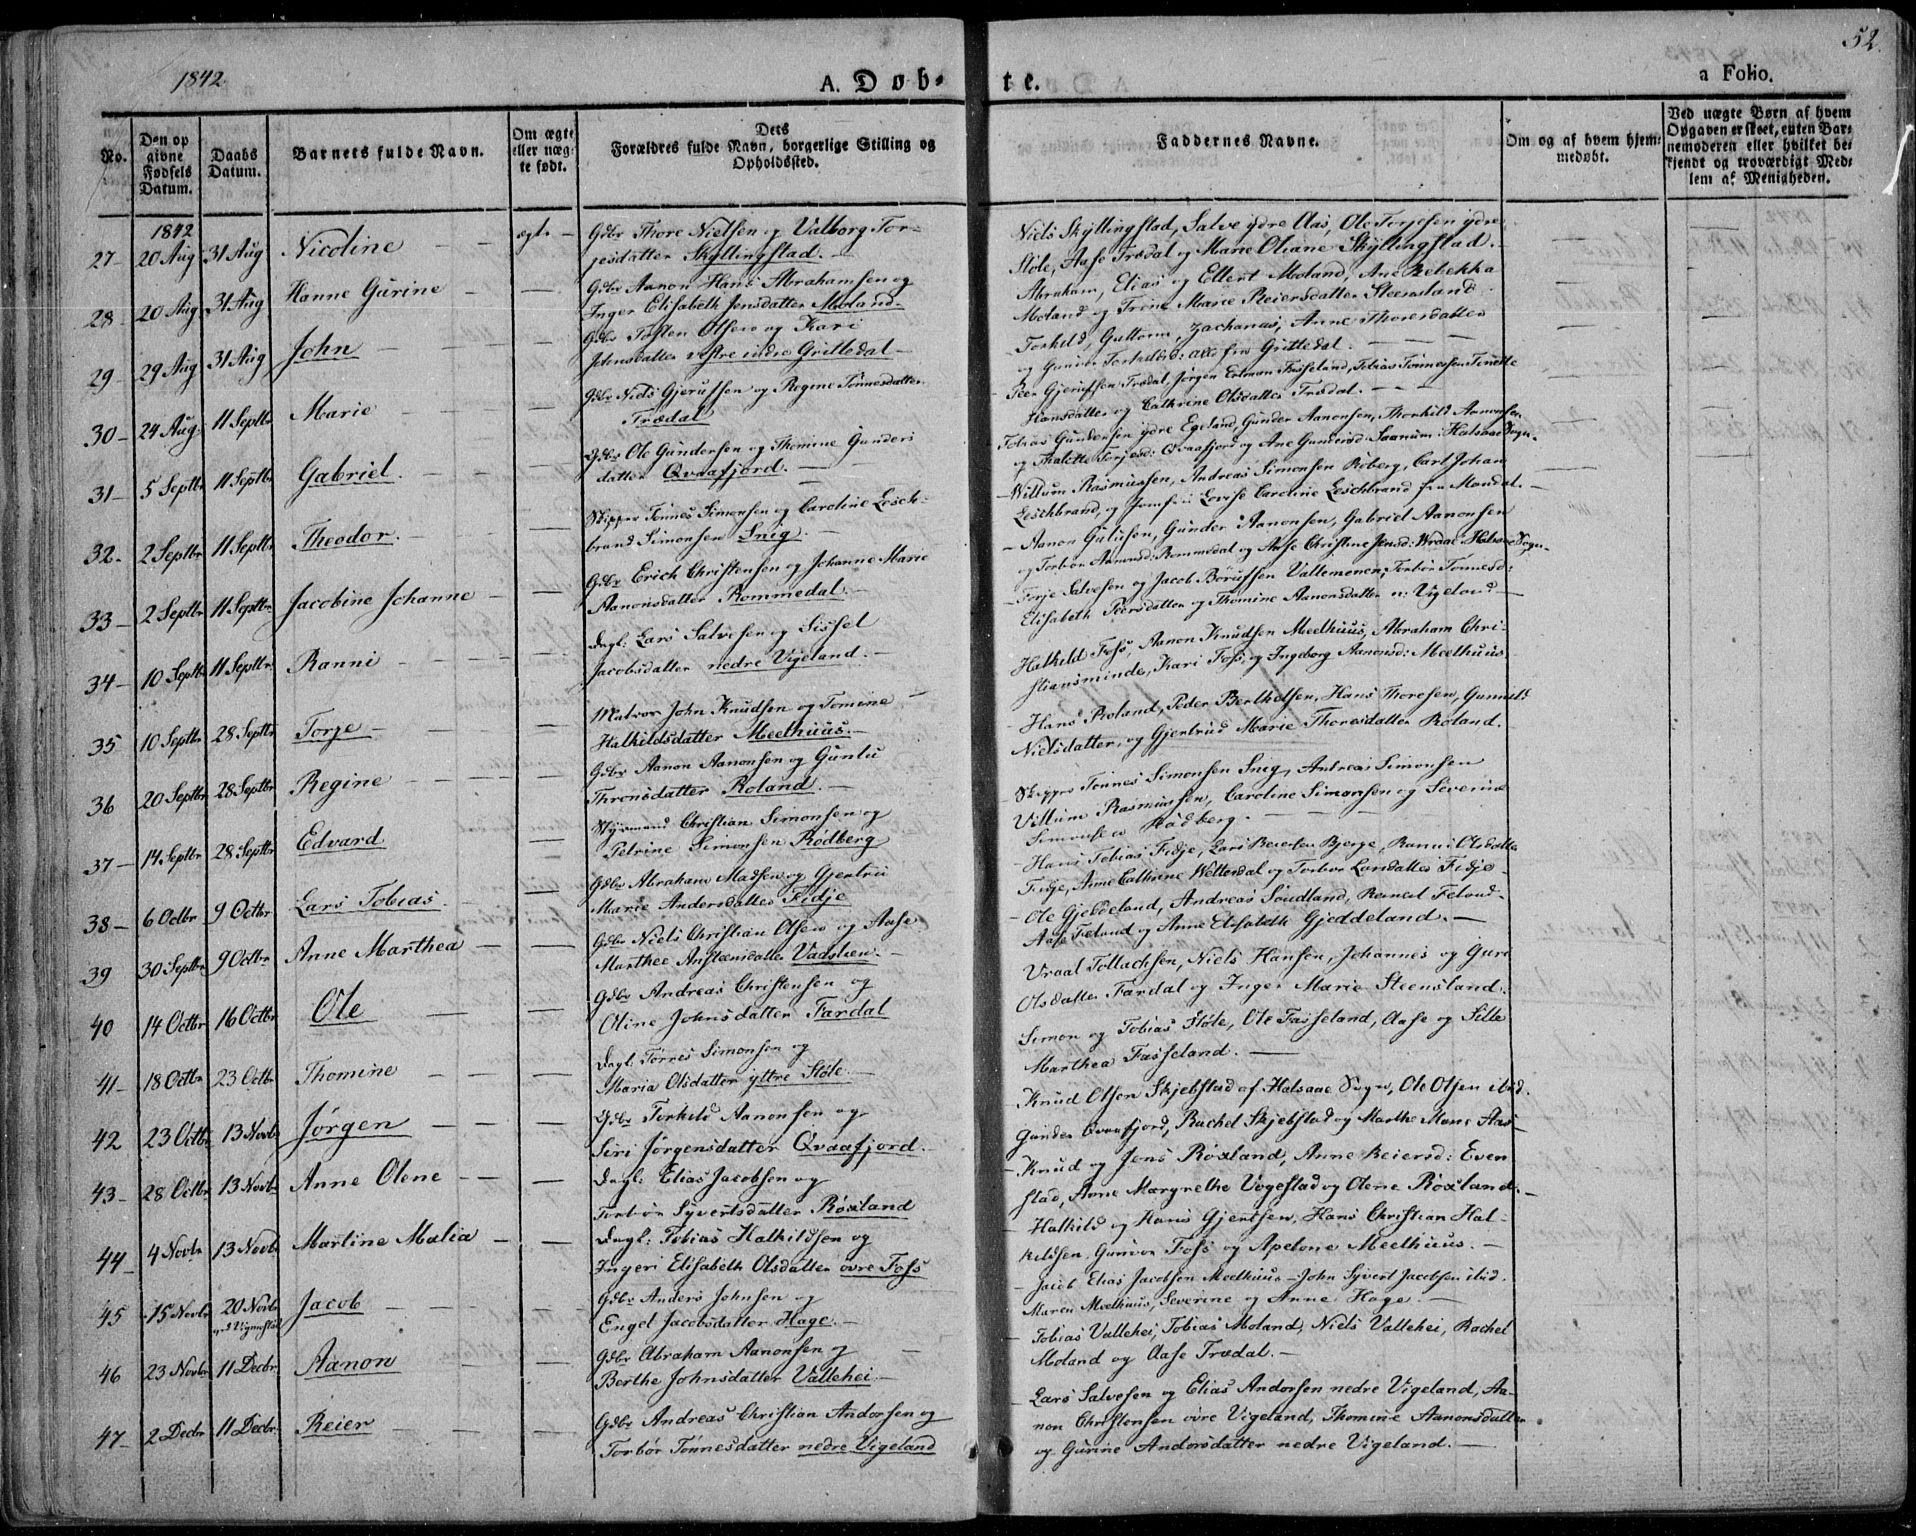 52.
1842
A. Døb-
te.
a Folio.
No.
Den op
givne
Fødsels
Datum.
Daabs
Datum.
Barnets fulde Navn.
Om ægte
eller uæg-
te født.
Dets
Forældres fulde Navn, borgerlige Stilling og
Opholdssted.
Faddernes Navne.
Om og af hvem hjem-
medøbt.
Ved uægte Børn af hvem
Opgaven er skeet, enten Bar-
nemoderen eller hvilket be-
kjendt og troværdigt Med-
lem af Menigheden.
1842
27 - 20 Aug 31 Aug Nicoline - - ægte -
Gdbr Thore Nielsen og Valborg Tor-
jesdatter Skyllingstad. -
Niels Skyllingstad, Salve ydre Aas, Ole Torjesen ydre
Støle, Aase Trædal og Marie Oliane Skyllingstad. -
28 - 20 Aug 31 Aug Hanne Gurine
Gdbr Aanon Hans Abrahamsen og
Inger Elisabeth Jensdatter Moland.
Abraham, Elias og Ellert Moland, Ane Rebekka
Moland og Trine Marie Reiersdatter Steensland.
29 - 29 Aug 31 Aug John
Gdbr Tosten Olsen og Kari
Johnsdatter vestre indre Grittedal -
Torkild, Guttorm, Zacharias, Anne Thoresdatter
og Gunvor Torkildsd: alle fra Grittedal. -
30 - 24 Aug. 11 Septbr Marie
Gdbr Niels Gjerufsen og Regine Tønnesdatter
Trædal
Peer Gjerufsen Trædal, Jørgen Ertman Fasseland, Tobias Tønnessen Tinette
Hansdatter og Cathrine Olsdatter Trædal. -
31 - 5 Septbr 11 Septbr Gabriel.
Gdbr Ole Gundersen og Thomine Gunders
datter Qvaafjord. -
Tobias Gundersen ydre Egeland, Gunder Aanonsen, Thorkild Aanonsen
og Thalette Torjesd: Qvaafjord og Ane Gundersd: Saanum: Halsaae Sogn.
32. 2 Septbr 11 Septbr Theodor. -
Skipper Tønnes Simonsen og Caroline Lesch-
brand Simonsen Snig. -
- Willum Rasmussen, Andreas Simonsen Roberg, Carl Johan
Leschbrand, og Jomfru Lovise Caroline Leschbrand fra Mandal. -
33 - 2 Septbr 11 Septbr Jacobine Johanne -
Gdbr Erich Christensen og Johanne Marie
Aanonsdatter Rommedal. -
- Aanon Gulufsen, Gunder Aanonsen, Gabriel Aanonsen
og Torbor Aanonsd: Rommedal og Aase Christine Jensd: Wraae Halsaae Sogn.
34 - 10 Septbr 11 Septbr Ranni
Dagl: Lars Salvesen og Sissel
Jacobsdatter nedre Vigeland. -
- Torje Salvesen og Jacob Børufsen Vallemoenen, Torbor Tønnesd:
Elisabeth Peersdatter og Thomine Aanonsdatter n: Vigeland -
35 10 Septbr 28 Septbr Torje -
Matros John Knudsen og Tomine -
Halkildsdatter Meelhuus. -
Halkild Foss, Aanon Knudsen Meelhuus, Abraham Chri-
stiansminde, Kari Foss, og Ingeborg Aanonsd: Meelhuus.
36 20 Septbr 28 Septbr Regine
Gdbr Aanon Aanonsen og Gunlu
Thronsdatter Roland. -
- Hans Roland, Peder Berthelsen, Hans Thoresen, Gunuld
Nielsdatter, og Gjertrud Marie Thoresdatter Roland.
37 - 14 Septbr 28 Septbr Edvard
Styrmand Christian Simonsen og
Petrine Simonsen Rødberg
- Skipper Tønnes Simonsen Snig, Andreas Simonsen
Villum Rasmussen, Caroline Simonsen og Severine
Simonsen Rødberg. -
38 - 6 Octbr 9 Octbr Lars Tobias.
Gdbr Abraham Madsen og Gjertru
Marie Andersdatter Fidje
- Hans Tobias Fidje, Lars Reiersen Bjerge, Ranni Olsdatter
Fidje, Anne Cathrine Wettesdal og Torbor Larsdatter Fidje.
39 30 Septbr 9 Octbr Anne Marthea -
Gdbr Niels Christian Olsen og Aase
Marthee Anstensdatter Vadstuen. -
- Ole Gjeddeland, Andreas Søndland, Reinert Feland
Aase Feland og Anne Elisabeth Gjeddeland. -
40 14 Octbr 16 Octbr Ole
Gdbr Andreas Christensen og
Oline Johnsdatter Fardal
Vraal Tollachsen, Niels Hansen, Johannes og Guro
Olsdatter Fardal og Inger Marie Steensland.
41 - 18 Octbr 23 Octbr Thomine
Dagl: Tørres Simonsen og
Maria Olsdatter yttre Støle. -
Simon og Tobias Støle, Ole Fasseland, Aase og Sille
Marthea Fasseland. -
42 23 Octbr 13 Novbr Jørgen
Gdbr Torkild Aanonsen og
Siri Jørgensdatter Qvaafjord.
Knud Olsen Skjebstad af Halsaae Sogn, Ole Olsen ibid.
Gunder Qvaafjord, Rachel Skjebstad og Marthe Marie Aas -
43 - 28 Octbr 13 Novbr Anne Olene - -
Dagl: Elias Jacobsen og
Torbør Syvertsdatter Røxland
- Knud og Jens Røxland, Anne Reiersd: Even
stad, Anne Margrethe Vogestad og Olene Røxland. -
44 4 Novbr 13 Novbr Martine Malia -
Dagl: Tobias Halkildsen og
Ingeri Elisabeth Olsdatter øvre Foss
- Halkild og Hans Gjertsen, Hans Christian Hal-
kildsen, Gunvor Foss og Apelone Meelhuus. -
45 15 Novbr 20 Novbr Jacob
Gdbr Anders Johnsen og
Engel Jacobsdatter Hage. -
- Jacob Elias Jacobsen Meelhuus - John Syvert Jacobsen ibid.
Maren Meelhuus, Severine og Anne Hage. -
46 23 Novbr 11 Decbr Aanon
Gdbr Abraham Aanonsen og
Berthe Johnsdatter Vallehei. -
Tobias Vallehei, Tobias Moland, Niels Vallehei, Rachel
Moland og Aase Trædal. -
47 - 2 Decbr 11 Decbr Reier
Gdbr Andreas Christian Andersen og
Torbør Tønnesdatter nedre Vigeland
Lars Salvesen og Elias Andersen nedre Vigeland, Aa-
non Christensen øvre Vigeland, Thomine Aanonsdatter
og Gurine Andersdatter nedre Vigeland. -